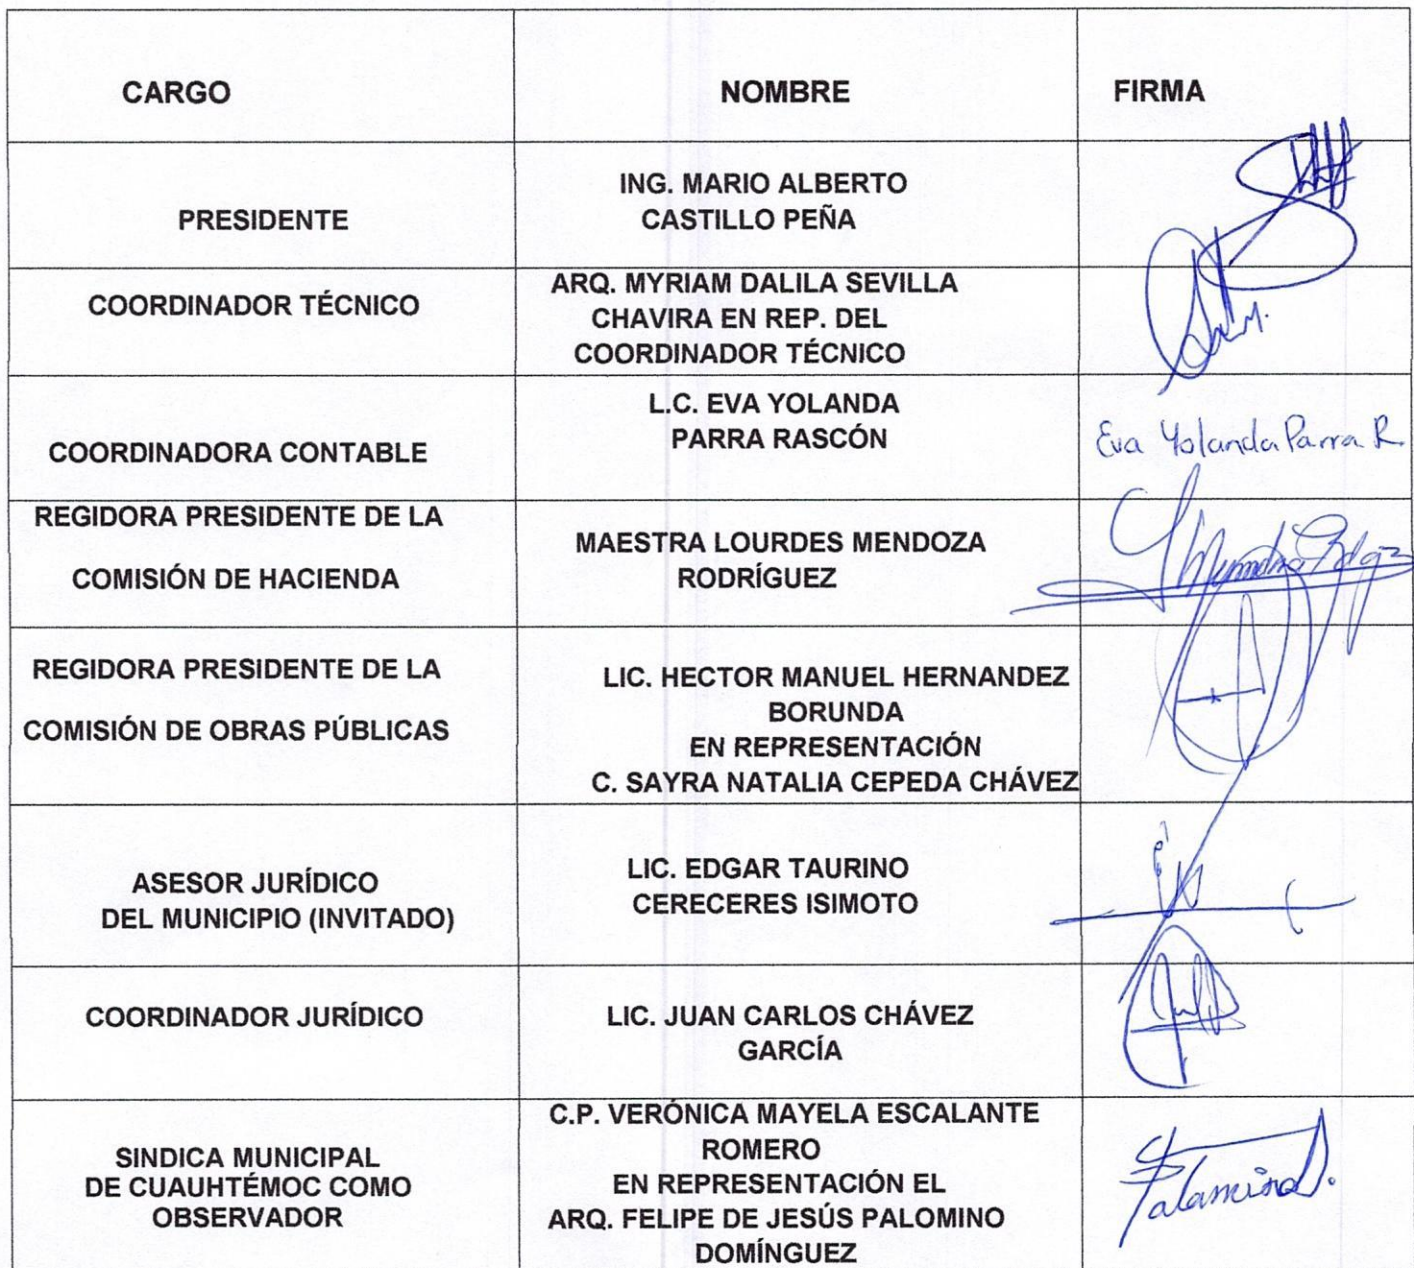 CARGO
NOMBRE
FIRMA
PRESIDENTE
ING. MARIO ALBERTO
CASTILLO PEÑA
COORDINADOR TÉCNICO
ARQ. MYRIAM DALILA SEVILLA
CHAVIRA EN REP. DEL
COORDINADOR TÉCNICO
COORDINADORA CONTABLE
L.C. EVA YOLANDA
PARRA RASCÓN
Eva Yolanda Parra R.
REGIDORA PRESIDENTE DE LA
COMISIÓN DE HACIENDA
MAESTRA LOURDES MENDOZA
RODRÍGUEZ
REGIDORA PRESIDENTE DE LA
COMISIÓN DE OBRAS PÚBLICAS
LIC. HECTOR MANUEL HERNANDEZ
BORUNDA
EN REPRESENTACIÓN
C. SAYRA NATALIA CEPEDA CHÁVEZ
ASESOR JURÍDICO
DEL MUNICIPIO (INVITADO)
LIC. EDGAR TAURINO
CERECERES ISIMOTO
COORDINADOR JURÍDICO
LIC. JUAN CARLOS CHÁVEZ
GARCÍA
SINDICA MUNICIPAL
DE CUAUHTÉMOC COMO
OBSERVADOR
C.P. VERÓNICA MAYELA ESCALANTE
ROMERO
EN REPRESENTACIÓN EL
ARQ. FELIPE DE JESÚS PALOMINO
DOMÍNGUEZ